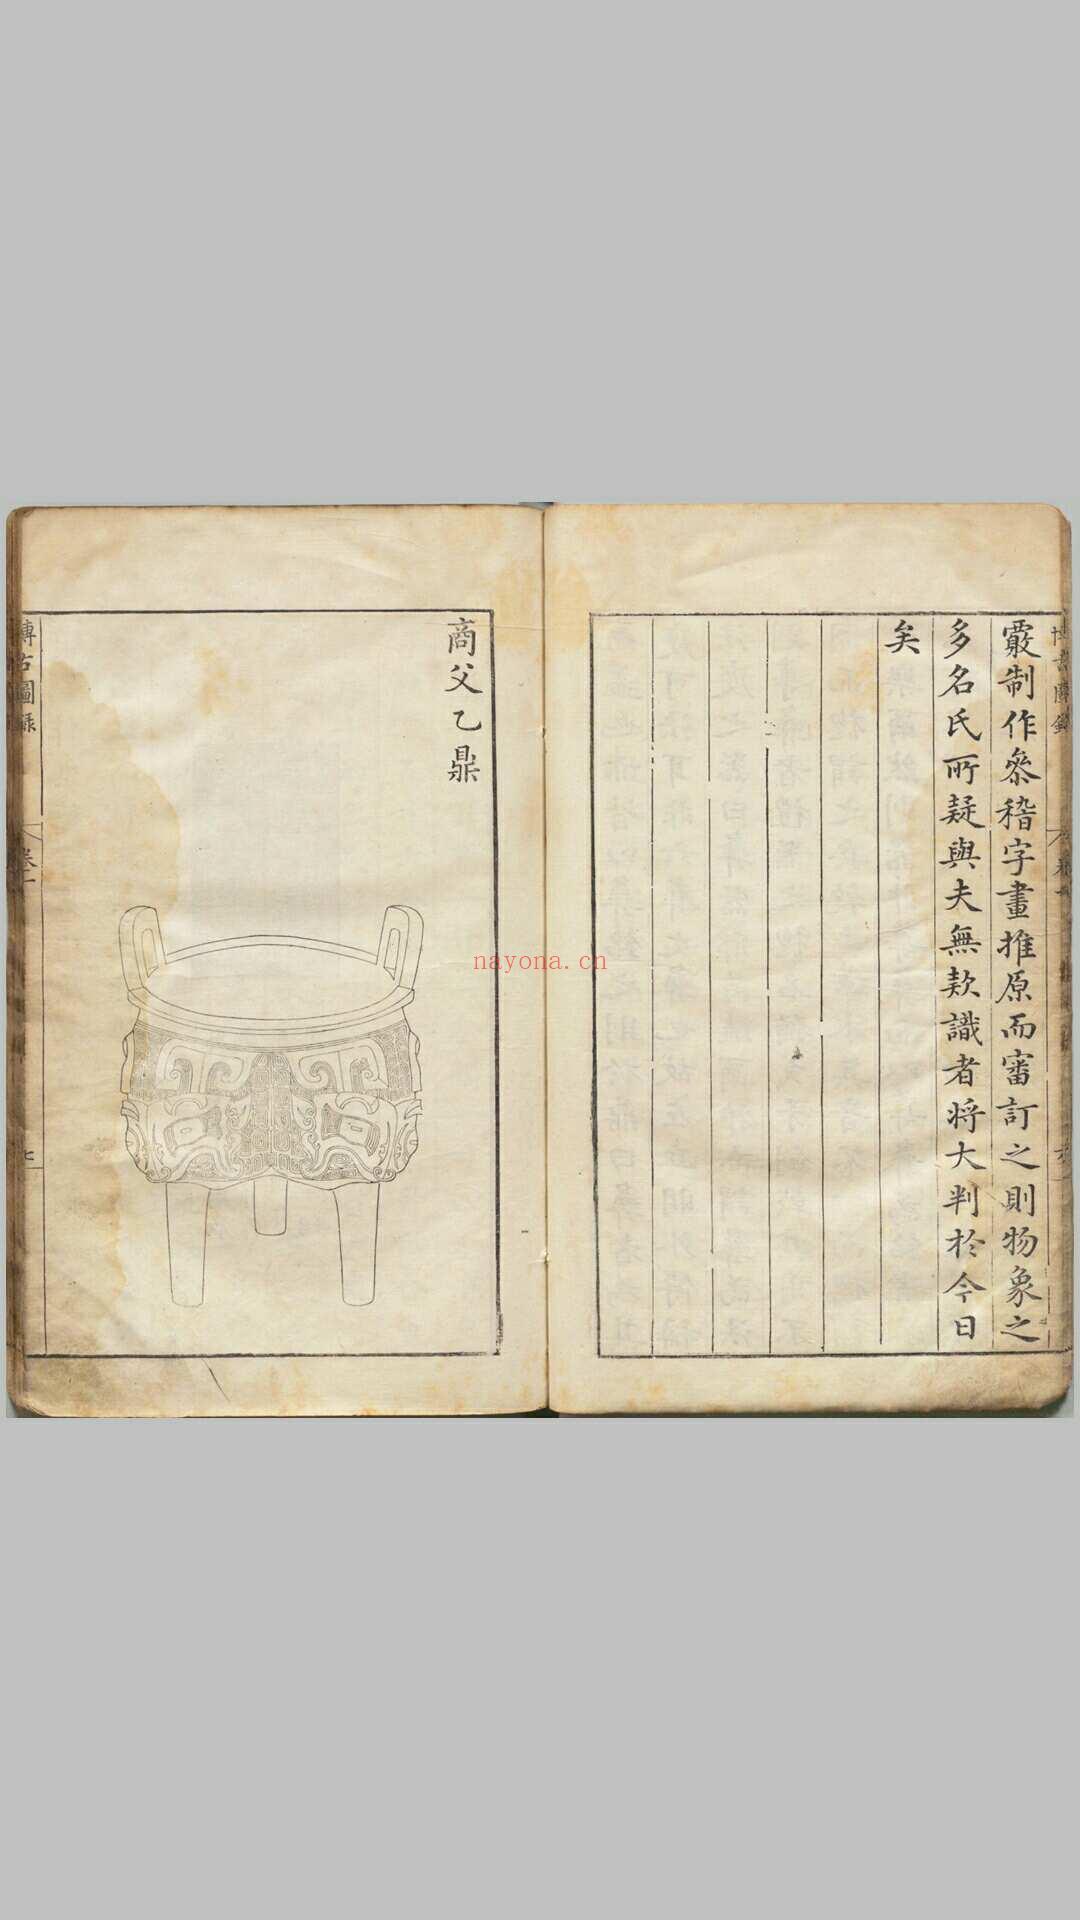 覈制作參稽字畫推原而審訂之則物象之
多名氏所疑與夫無款識者將大判於今日
矣
商父乙鼎
博古圖錄
卷一
七
nayona.cn